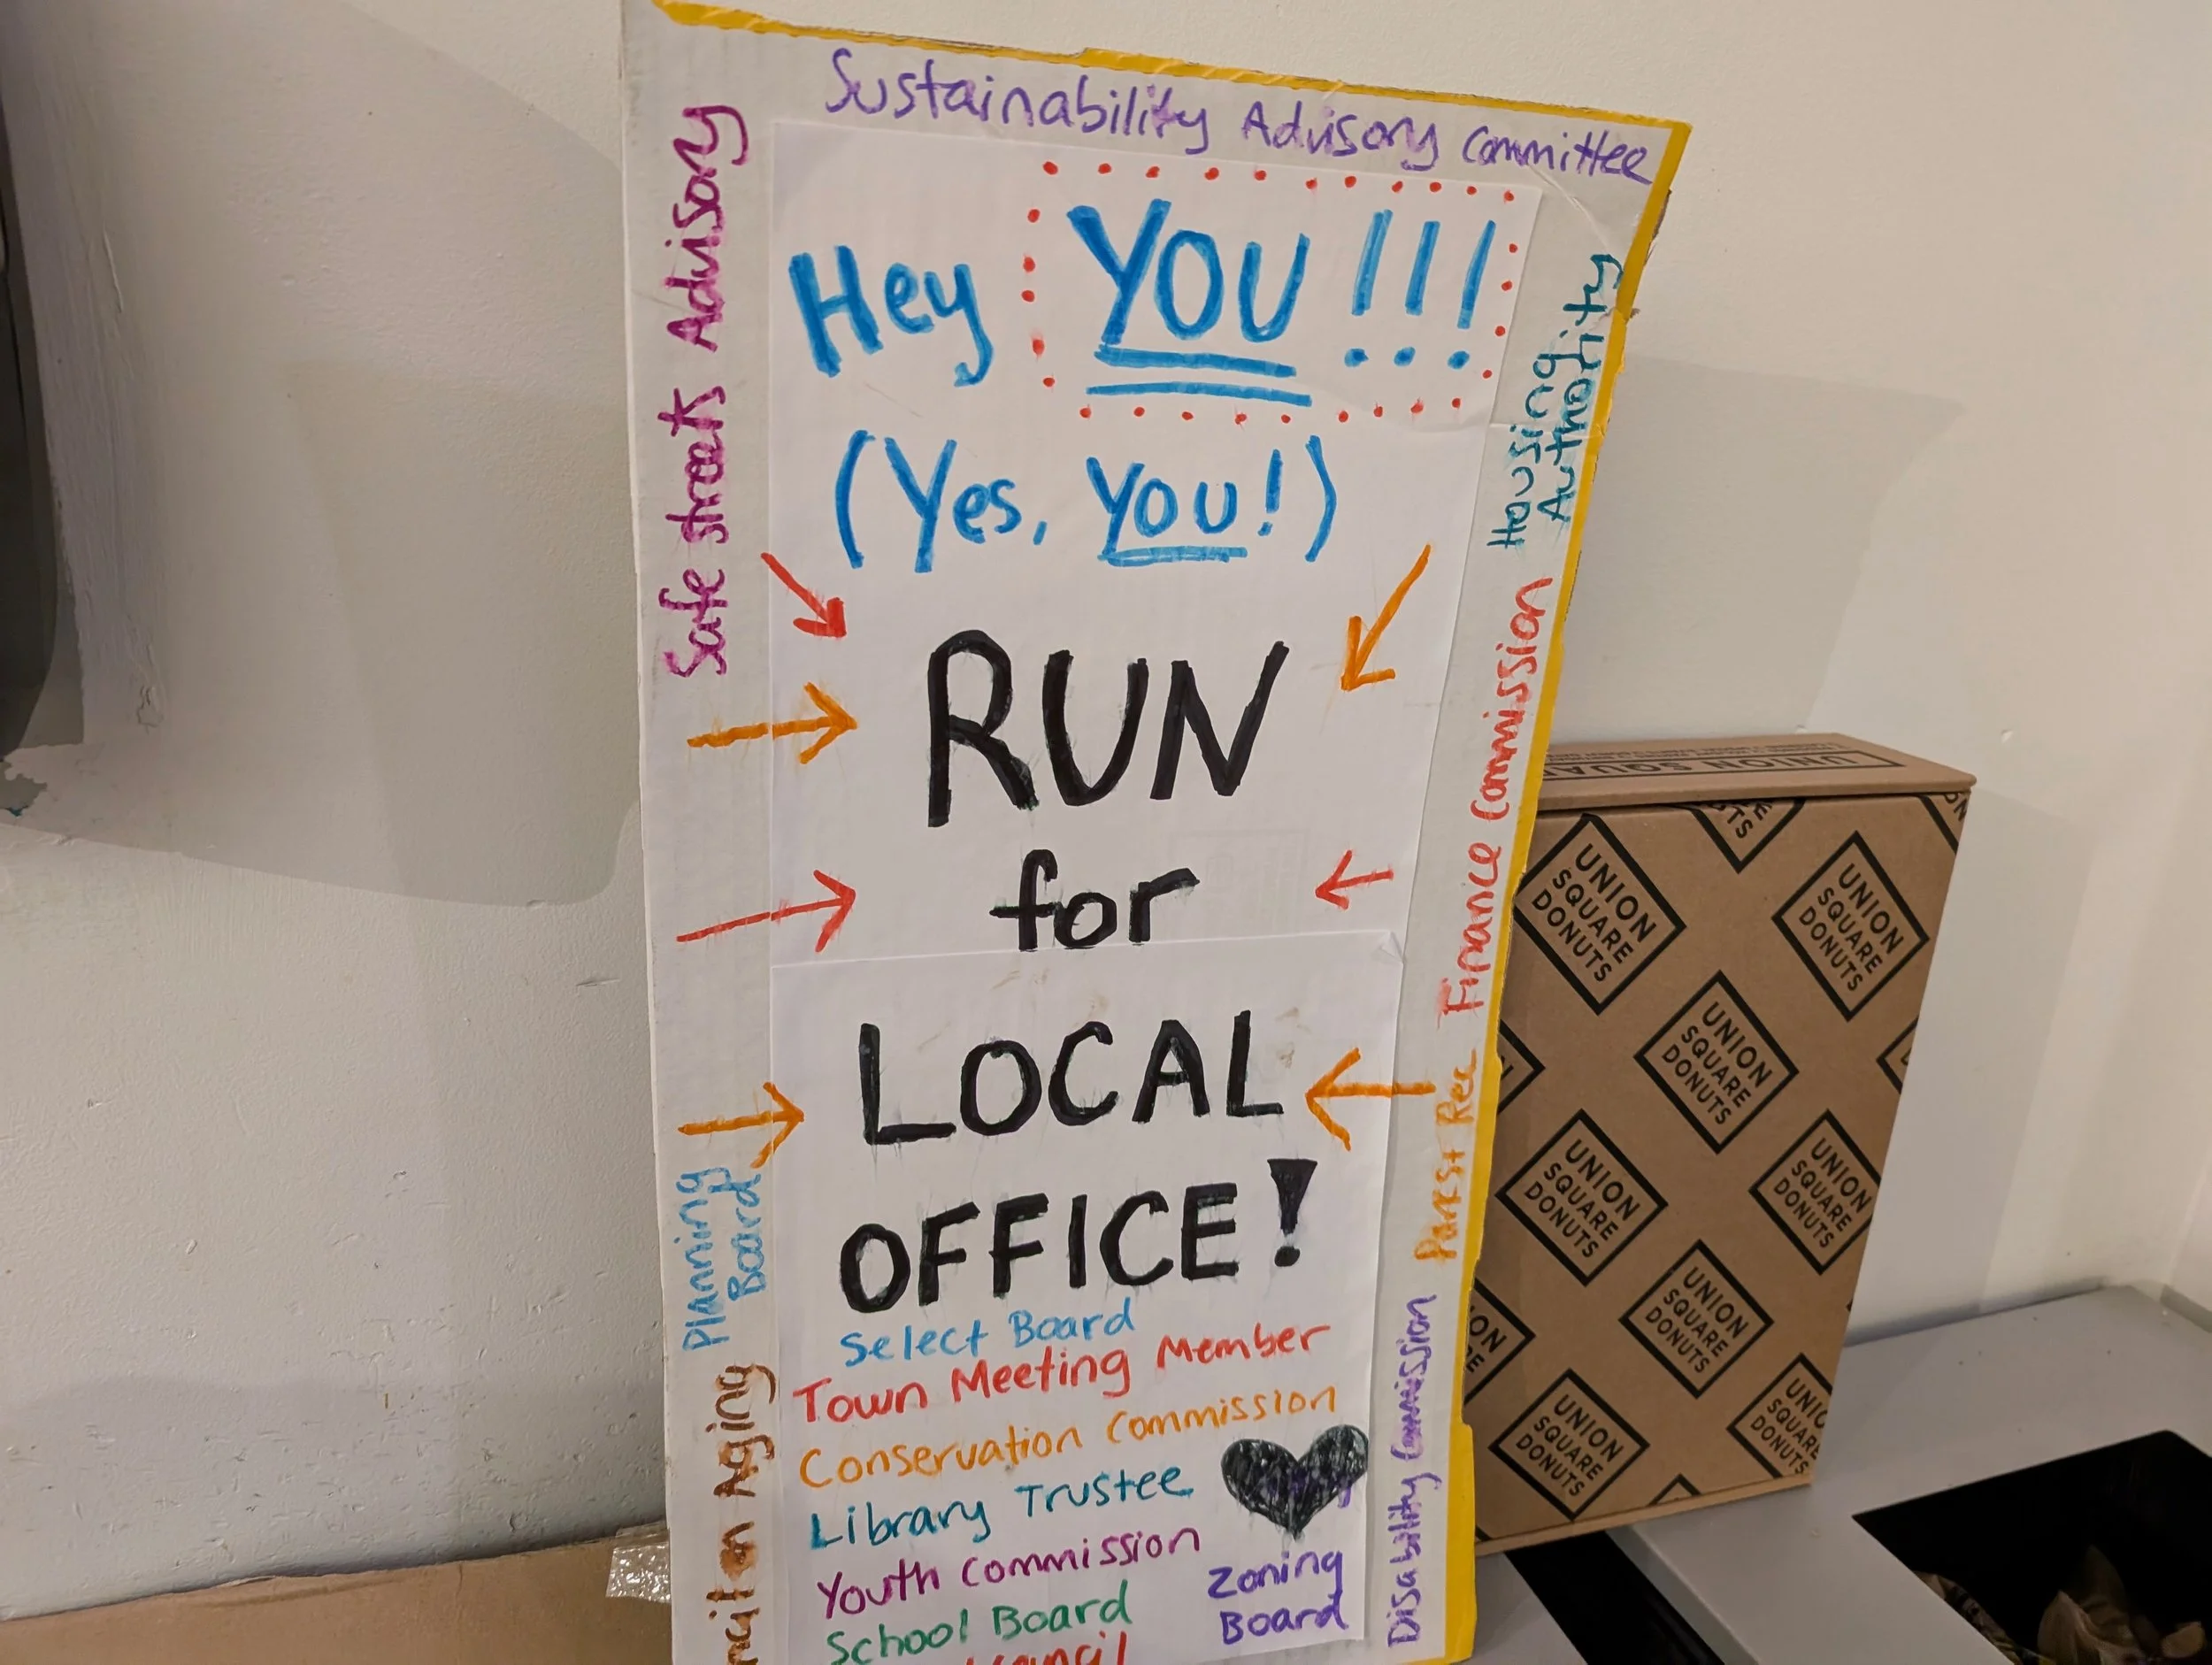 Sustainability Advisory Committee
Safe streets Advisory
Hey YOU!!!
(Yes, You!)
RUN
for
LOCAL
OFFICE!
Select Board
Town Meeting Member
Conservation Commission
Library Trustee
Youth Commission
School Board
Zoning
Board
Planning
Board
on Aging
Housing
Authority
Finance Commission
Parks + Rec
Disability Commission
UNION SQUARE
UNION
SQUARE
DONUTS
UNION
SQUARE
DONUTS
UNION
SQUARE
DONUTS
UNION
SQUARE
DONUTS
UNION
SQUARE
DONUTS
UNION
SQUARE
DONUTS
UNION
SQUARE
DONUTS